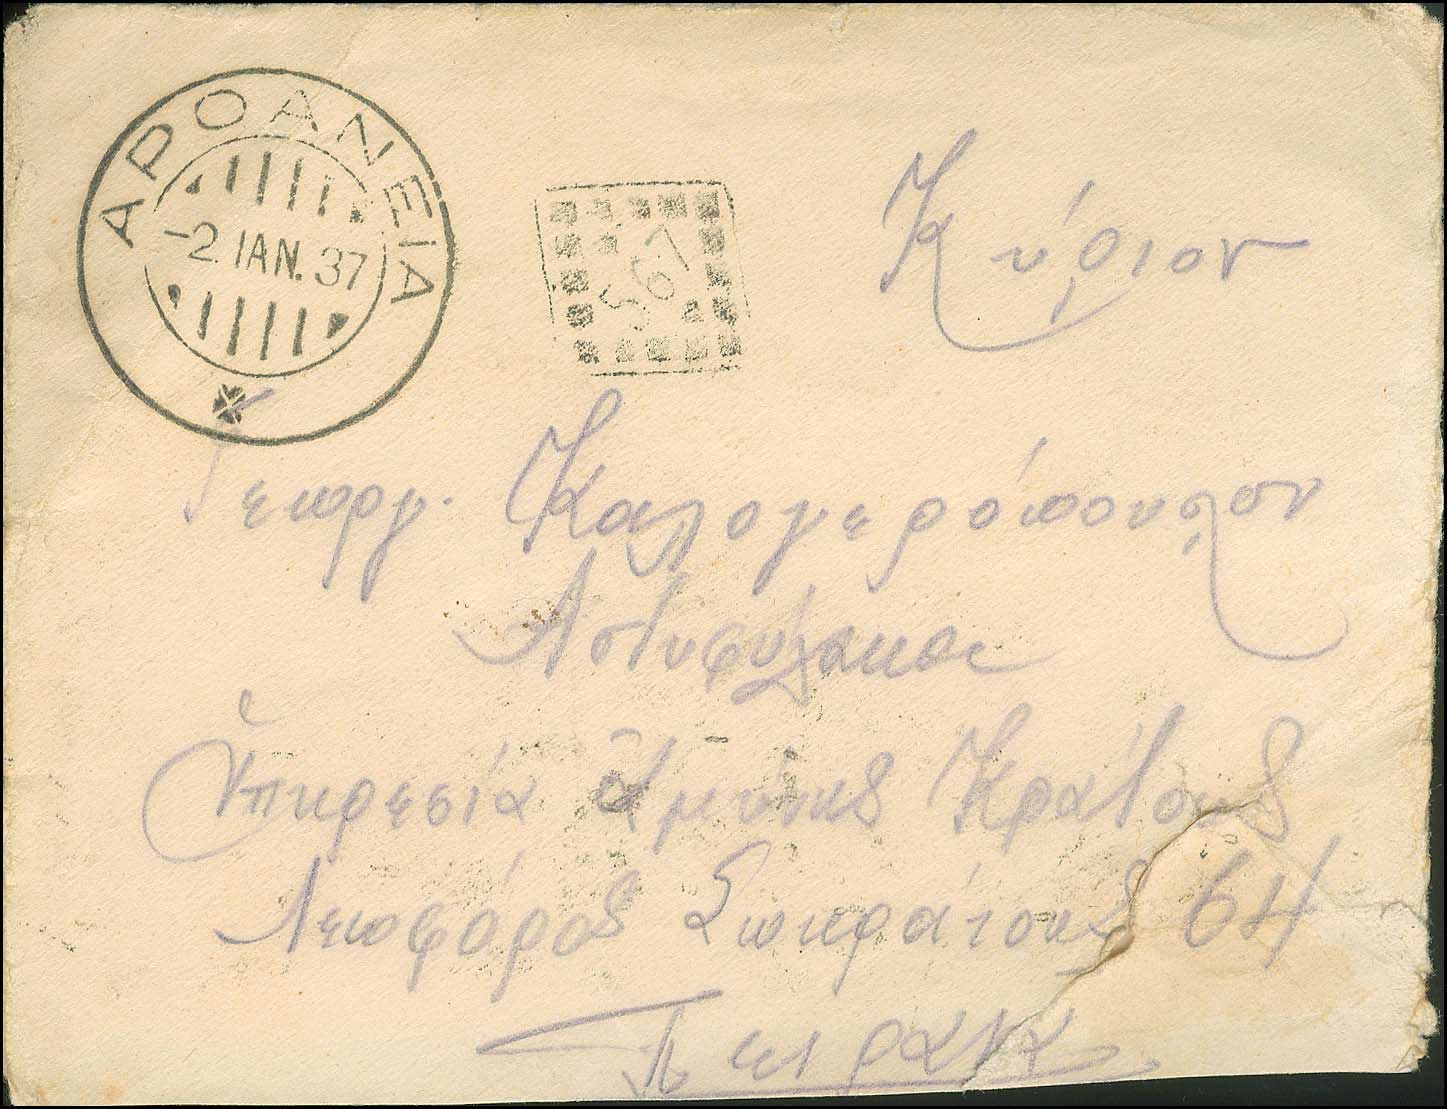 ΑΡΟΑΝΕΙΑ
-2. ΙΑΝ. 37
567
Κύριον
Γεωργ. Καλογερόπουλον
Αστυφύλακα
Ὑπηρεσία Ἀμύνης Κράτους
Λεωφόρος Σωκράτους 64
Πειραια